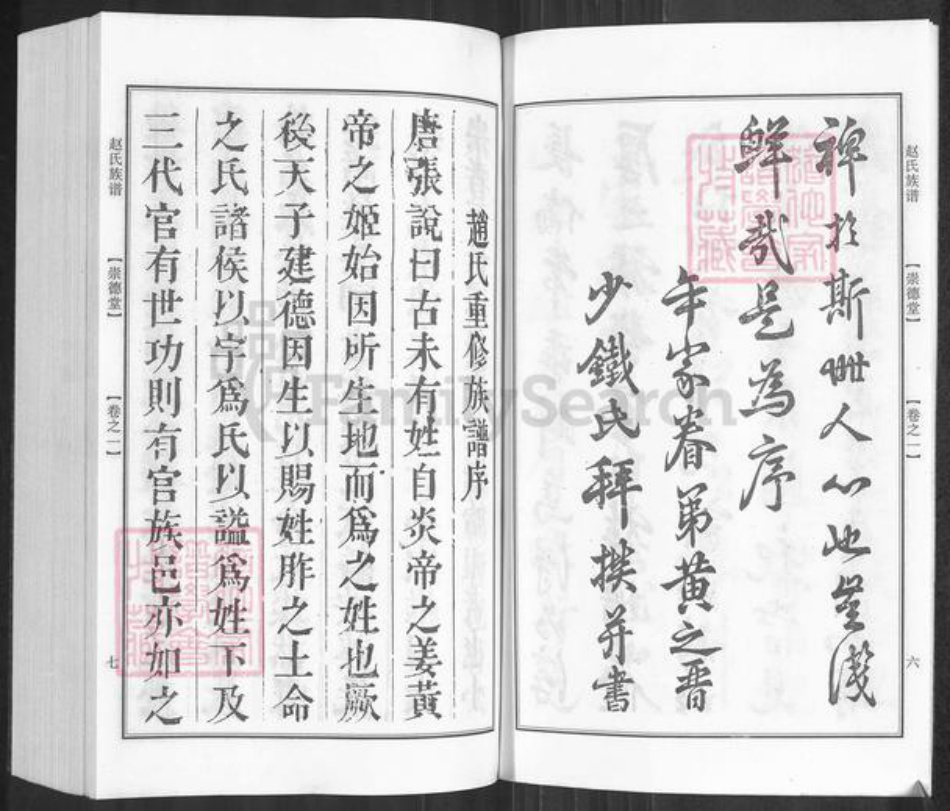 赵氏族谱
【崇德堂】
【卷之一】
六
裨於斯世人心也豈淺
鮮哉是為序
年家眷弟黄之晋
少鐵氏拜撰并書
趙氏重修族譜序
唐張說曰古未有姓自炎帝之姜黃
帝之姬始因所生地而爲之姓也厥
後天子建德因生以賜姓胙之土命
之氏諸侯以字爲氏以謚爲姓下及
三代官有世功則有官族邑亦如之
赵氏族谱
【崇德堂】
【卷之一】
七
FamilySearch